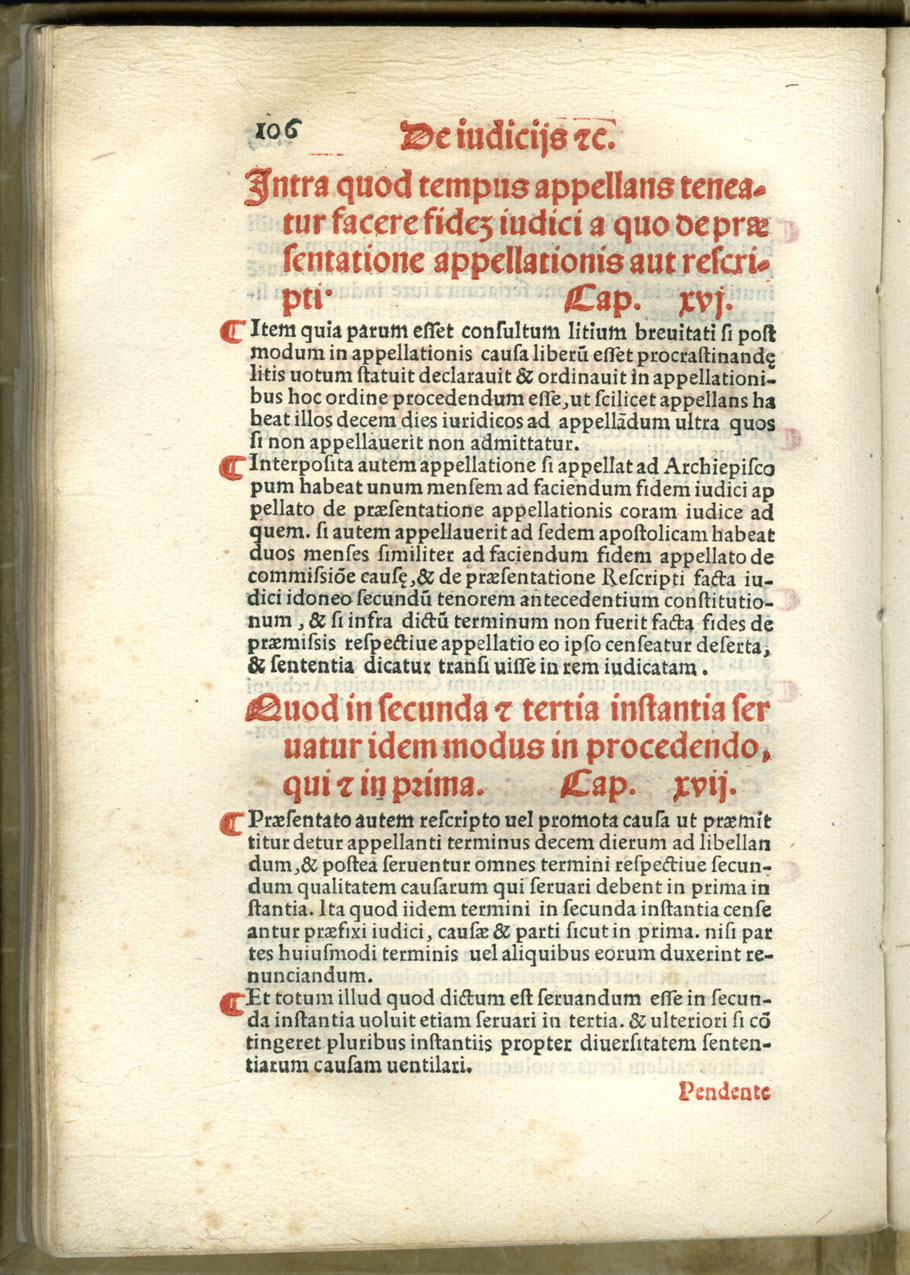 106 De iudicijs ⁊c.
Intra quod tempus appellans tenea⸗
tur facere fideʒ iudici a quo de præ
ſentatione appellationis aut reſcri⸗
pti· Cap. xvj.
¶ Item quia parum eſſet conſultum litium breuitati ſi poſt
modum in appellationis cauſa liberū eſſet procraſtinandę
litis uotum ſtatuit declarauit & ordinauit in appellationi-
bus hoc ordine procedendum eſſe, ut ſcilicet appellans ha
beat illos decem dies iuridicos ad appellādum ultra quos
ſi non appellauerit non admittatur.
¶ Interpoſita autem appellatione ſi appellat ad Archiepiſco
pum habeat unum menſem ad faciendum fidem iudici ap
pellato de præſentatione appellationis coram iudice ad
quem. ſi autem appellauerit ad ſedem apoſtolicam habeat
duos menſes ſimiliter ad faciendum fidem appellato de
commiſsiōe cauſę, & de præſentatione Reſcripti facta iu-
dici idoneo ſecundū tenorem antecedentium conſtitutio-
num , & ſi infra dictū terminum non fuerit facta fides de
præmiſsis reſpectiue appellatio eo ipſo cenſeatur deſerta,
& ſententia dicatur tranſi uiſſe in rem iudicatam .
Quod in ſecunda ⁊ tertia inſtantia ſer
uatur idem modus in procedendo,
qui ⁊ in prima. Cap. xvij.
¶ Præſentato autem reſcripto uel promota cauſa ut præmit
titur detur appellanti terminus decem dierum ad libellan
dum, & poſtea ſeruentur omnes termini reſpectiue ſecun-
dum qualitatem cauſarum qui ſeruari debent in prima in
ſtantia. Ita quod iidem termini in ſecunda inſtantia cenſe
antur præfixi iudici, cauſæ & parti ſicut in prima. niſi par
tes huiuſmodi terminis uel aliquibus eorum duxerint re-
nunciandum.
¶ Et totum illud quod dictum eſt ſeruandum eſſe in ſecun-
da inſtantia uoluit etiam ſeruari in tertia. & ulteriori ſi cō
tingeret pluribus inſtantiis propter diuerſitatem ſenten-
tiarum cauſam uentilari.
Pendente